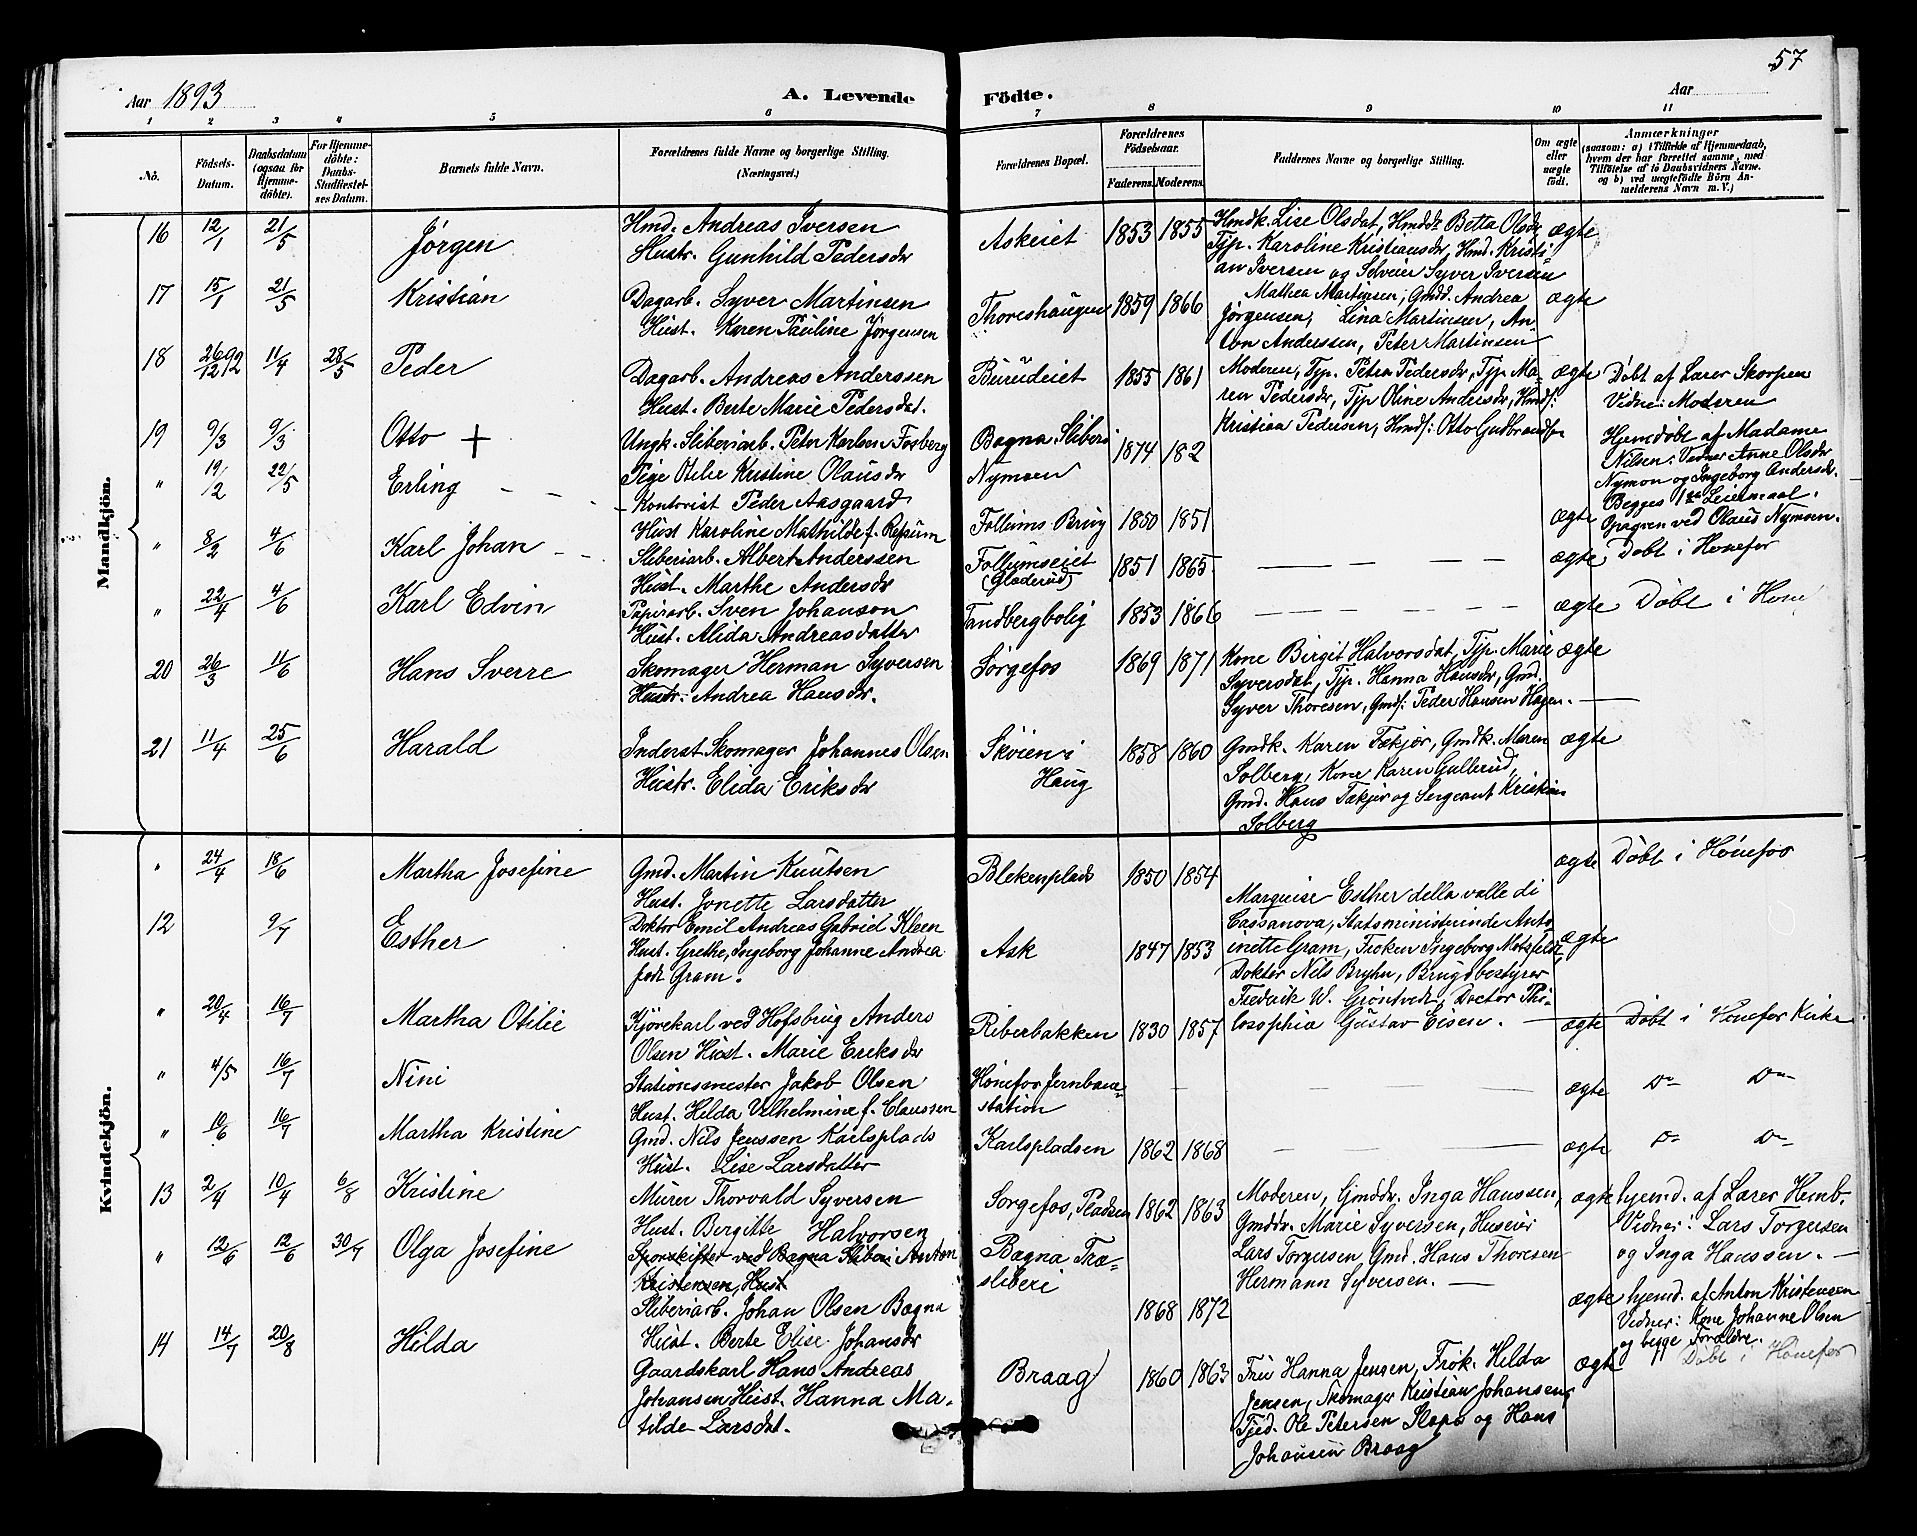 57
Aar 1893
A. Levende Födte.
Aar
1 2 3 4 5 6 7 8 9 10 11
No.
Födsels-Datum.
Daabsdatum (ogsaa for Hjemmedöbte).
For Hjemmedöbte: Daabs-Stadfæstelses Datum.
Barnets fulde Navn.
Forældrenes fulde Navne og borgerlige Stilling. (Næringsvei.)
Forældrenes Bopæl.
Forældrenes Födselsaar.
Faderens. Moderens.
Faddernes Navne og borgerlige Stilling.
Om ægte eller uægte födt.
Anmærkninger
(saasom: a) i Tilfælde af Hjemmedaab, hvem der har forrettet samme, med Tilföielse af to Daabsvidners Navne. og b) ved uægtefödte Börn Anmelderens Navn m. V.)
Mandkjön.
16 12/1 21/5 Jørgen
Hmd. Andreas Iversen
Hustr. Gunhild Pedersdr
Askeiet 1853 1855
Hmdk. Lise Olsdat, Hmddt Betta Olsdr
Tjp. Karoline Kristiansdr, Hmd. Kristi
an Iversen og Selveier Syver Iversen
ægte
17 15/1 21/5 Kristian
Dagarb. Syver Martinsen
Hust. Karen Pauline Jørgensen
Thoreshaugen 1859 1866
Mathea Martinsen, Gmdd. Andrea
Jørgensen, Lina Martinsen, An-
ton Anderssen, Peter Martinsen
ægte
18 26/12 92 11/4 28/5 Peder
Dagarb. Andreas Anderssen
Hust. Berte Marie Pedersdat.
Burudeiet 1855 1861
Moderen, Tjp. Petra Pedersdr, Tjp. Ma-
ren Pedersdr, Tjp Oline Andersdr, Hmdf:
Kristian Pedersen, Hmdf: Otto Gulbrandsen
ægte
Døbt af Lærer Skorpen
Vidne: Moderen
19 9/3 9/3 Otto +
Ungk. Sliberiarb. Peter Karlsen Fosberg
Pige Otilie Kristine Olausdr
Bagna Sliberi
Nymoen
1874 182
Hjemdøbt af Madame
Nilsen. Vidner Anne Olsdr
Nymon og Ingeborg Andersdr.
Begges 1ste Leiermaal.
Opgaven ved Olaus Nymoen.
" 19/2 22/5 Erling - - -
Kontorist Peder Aasgaard
Hust Karoline Mathilde f. Refsum
Follums Brug 1850 1851
ægte
" 8/2 4/6 Karl Johan - -
Sliberiarb. Albert Anderssen
Hust. Marthe Andersdr
Follumseiet
(Gladerud)
1851 1865
ægte Døbt i Hønefos
" 22/4 4/6 Karl Edvin
Papirarb. Sven Johanson
Hust. Alida Andreasdatter
Tandbergbolig 1853 1866
ægte Døbt i Høne
20 26/3 11/6 Hans Sverre
Skomager Herman Syversen
Hustr. Andrea Hansdr.
Sørgefos 1869 1871
Kone Birgit Halvorsdat, Tjp. Marie
Syversdat, Tjp. Hanna Hansdr, Gmd.
Syver Thoresen, Gmdf: Peder Hansen Hagen.
ægte
21 11/4 25/6 Harald
Inderst Skomager Johannes Olsen
Hustr. Elida Eriksdr
Skøien i
Haug
1858 1860
Gmdk. Karen Fækjær, Gmdk. Maren
Solberg, Kone Karen Gullerud,
Gmd. Hans Fækjær og Sergeant Kristian
Solberg
ægte
Kvindekjön.
" 24/4 18/6 Martha Josefine
Gmd. Martin Knutsen
Hust. Jonette Larsdatter
Blekenplads 1850 1854
ægte Døbt i Hønefos
12 9/7 Esther
Doktor Emil Andreas Gabriel Kleen
Hust. Grethe, Ingeborg Johanne Andrea
født Gram.
Ask 1847 1853
Marquise Esther della valle di
Cassanova, Statsministerinde Anto
inette Gram, Frøken Ingeborg Motzfeldt,
Doktor Nils Bryhn, Brugsbestyrer
Fredrik W. Grøntvedt, Doctor Phi-
losophia Gustav Eisen.
ægte
" 20/4 16/7 Martha Otilie
Kjørekarl ved Hofsbrug Anders
Olsen Hust. Marie Eriksdr
Riberbakken 1830 1857
ægte Døbt i Hønefos Kirke
" 4/5 16/7 Nini
Stationsmester Jakob Olsen
Hust. Hilda Vilhelmine f. Claussen
Hønefos Jernbane-
station
ægte Do Do
" 10/6 16/7 Martha Kristine
Gmd. Nils Jenssen Karlsplads
Hust. Lise Larsdatter
Karlspladsen 1862 1868
ægte Do Do
13 2/4 10/4 6/8 Kristine
Murer Thorvald Syversen
Hust. Bergitte Halvorsen
Sørgefos, Pladsen 1862 1863
Moderen, Gmddr. Inga Hanssen,
Gmddr. Marie Syversen, Huseier
Lars Torgersen, Gmd. Hans Thoresen
Hermann Syversen.
ægte
hjemd. af Lærer Hemb.
Vidner: Lars Torgersen
og Inga Hanssen.
" 12/6 12/6 30/7 Olga Josefine
Sporskifter ved Bagna Sliberi Anton
Kristensen, Hust
Sliberiarb. Johan Olsen Bægna
Hust. Berte Elise Johansdr
Bægna Træ-
sliberi
1868 1872
ægte
hjemd. af Anton Kristensen
Vidner: Kone Johanne Olsen
og begge Forældre.
14 14/7 20/8 Hilda
Gaardskarl Hans Andreas
Johansen Hust. Hanna Ma-
tilde Larsdat.
Braag 1860 1863
Fru Hanna Jensen, Frøk. Hilda
Jensen, Skomager Kristian Johansen,
Tjed. Ole Petersen Slops og Hans
Johansen Braag
ægte
Døbt i Hønefos